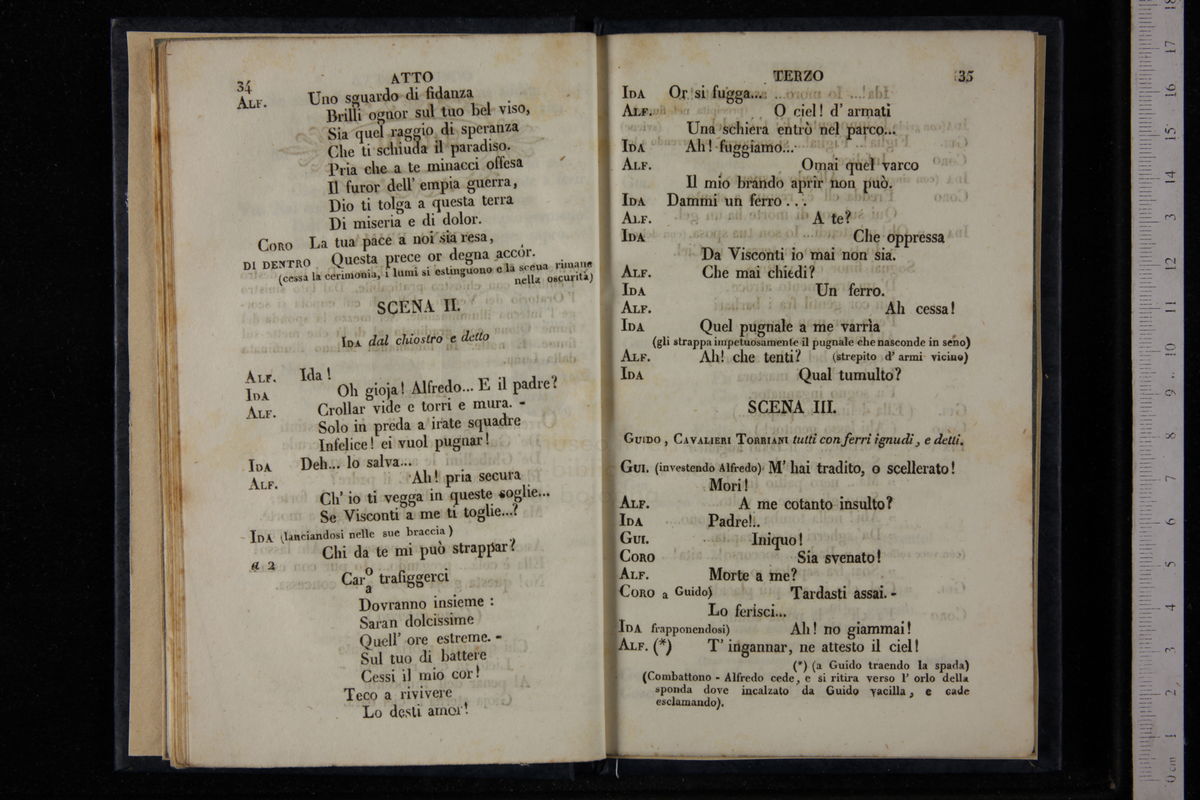 34
ATTO
ALF. Uno sguardo di fidanza
Brilli ognor sul tuo bel viso,
Sia quel raggio di speranza
Che ti schiuda il paradiso.
Pria che a te minacci offesa
Il furor dell' empia guerra,
Dio ti tolga a questa terra
Di miseria e di dolor.
CORO La tua pace a noi sia resa,
DI DENTRO Questa prece or degna accor.
(cessa la cerimonia, i lumi si estinguono e la scena rimane
nella oscurità)
SCENA II.
IDA dal chiostro e detto
ALF. Ida!
IDA Oh gioja! Alfredo... E il padre?
ALF. Crollar vide e torri e mura. -
Solo in preda a irate squadre
Infelice! ei vuol pugnar!
IDA Deh... lo salva...
ALF. Ah! pria secura
Ch' io ti vegga in queste soglie...
Se Visconti a me ti toglie...?
IDA (lanciandosi nelle sue braccia)
Chi da te mi può strappar?
a 2
Car o a trafiggerci
Dovranno insieme:
Saran dolcissime
Quell' ore estreme. -
Sul tuo di battere
Cessi il mio cor!
Teco a rivivere
Lo desti amor!
TERZO
35
IDA Or si fugga...
ALF. O ciel! d' armati
Una schiera entrò nel parco...
IDA Ah! fuggiamo...
ALF. Omai quel varco
Il mio brando aprir non può.
IDA Dammi un ferro...
ALF. A te?
IDA Che oppressa
Da Visconti io mai non sia.
ALF. Che mai chiedi?
IDA Un ferro.
ALF. Ah cessa!
IDA Quel pugnale a me varrìa
(gli strappa impetuosamente il pugnale che nasconde in seno)
ALF. Ah! che tenti? (strepito d' armi vicino)
IDA Qual tumulto?
SCENA III.
GUIDO, CAVALIERI TORRIANI tutti con ferri ignudi, e detti.
GUI. (investendo Alfredo) M' hai tradito, o scellerato!
Mori!
ALF. A me cotanto insulto?
IDA Padre!..
GUI. Iniquo!
CORO Sia svenato!
ALF. Morte a me?
CORO a Guido) Tardasti assai. -
Lo ferisci...
IDA frapponendosi) Ah! no giammai!
ALF. (*) T' ingannar, ne attesto il ciel!
(*) (a Guido traendo la spada)
(Combattono - Alfredo cede, e si ritira verso l' orlo della
sponda dove incalzato da Guido vacilla, e cade
esclamando).